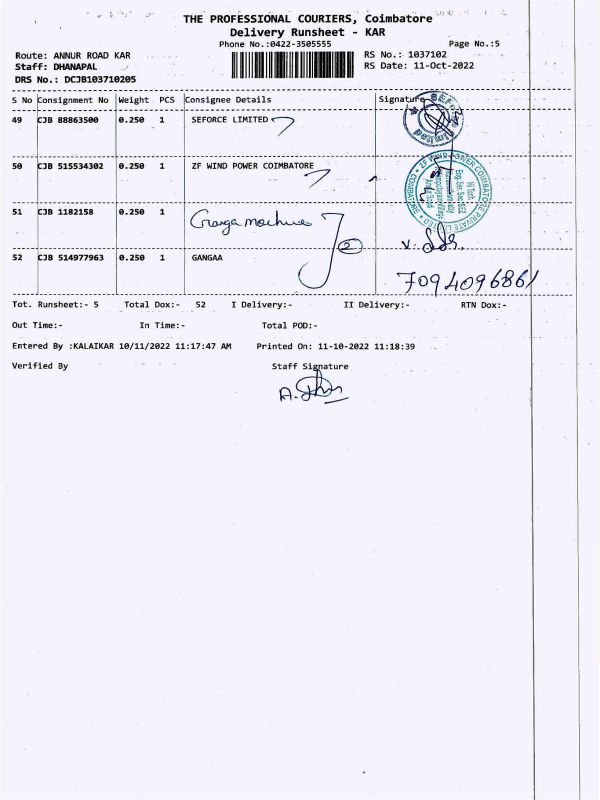 THE PROFESSIONAL COURIERS, Coimbatore
Delivery Runsheet - KAR
Phone No.:0422-3505555
Page No.:5
Route: ANNUR ROAD KAR
RS No.: 1037102
Staff: DHANAPAL
RS Date: 11-Oct-2022
DRS No.: DCJB103710205
S No Consignment No Weight PCS Consignee Details Signature
49 CJB 88863500 0.250 1 SEFORCE LIMITED
50 CJB 515534302 0.250 1 ZF WIND POWER COIMBATORE
51 CJB 1182158 0.250 1
52 CJB 514977963 0.250 1 GANGAA
7094096861
Tot. Runsheet:- 5 Total Dox:- 52 I Delivery:- II Delivery:- RTN Dox:-
Out Time:- In Time:- Total POD:-
Entered By :KALAIKAR 10/11/2022 11:17:47 AM Printed On: 11-10-2022 11:18:39
Verified By Staff Signature